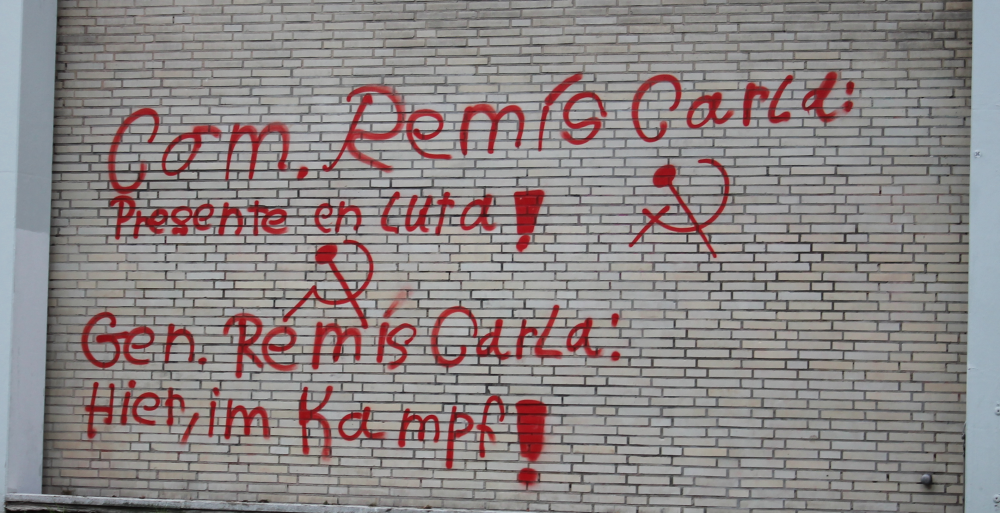 Com. Remís Carla:
Presente en luta!
Gen. Remís Carla:
Hier, im Kampf!